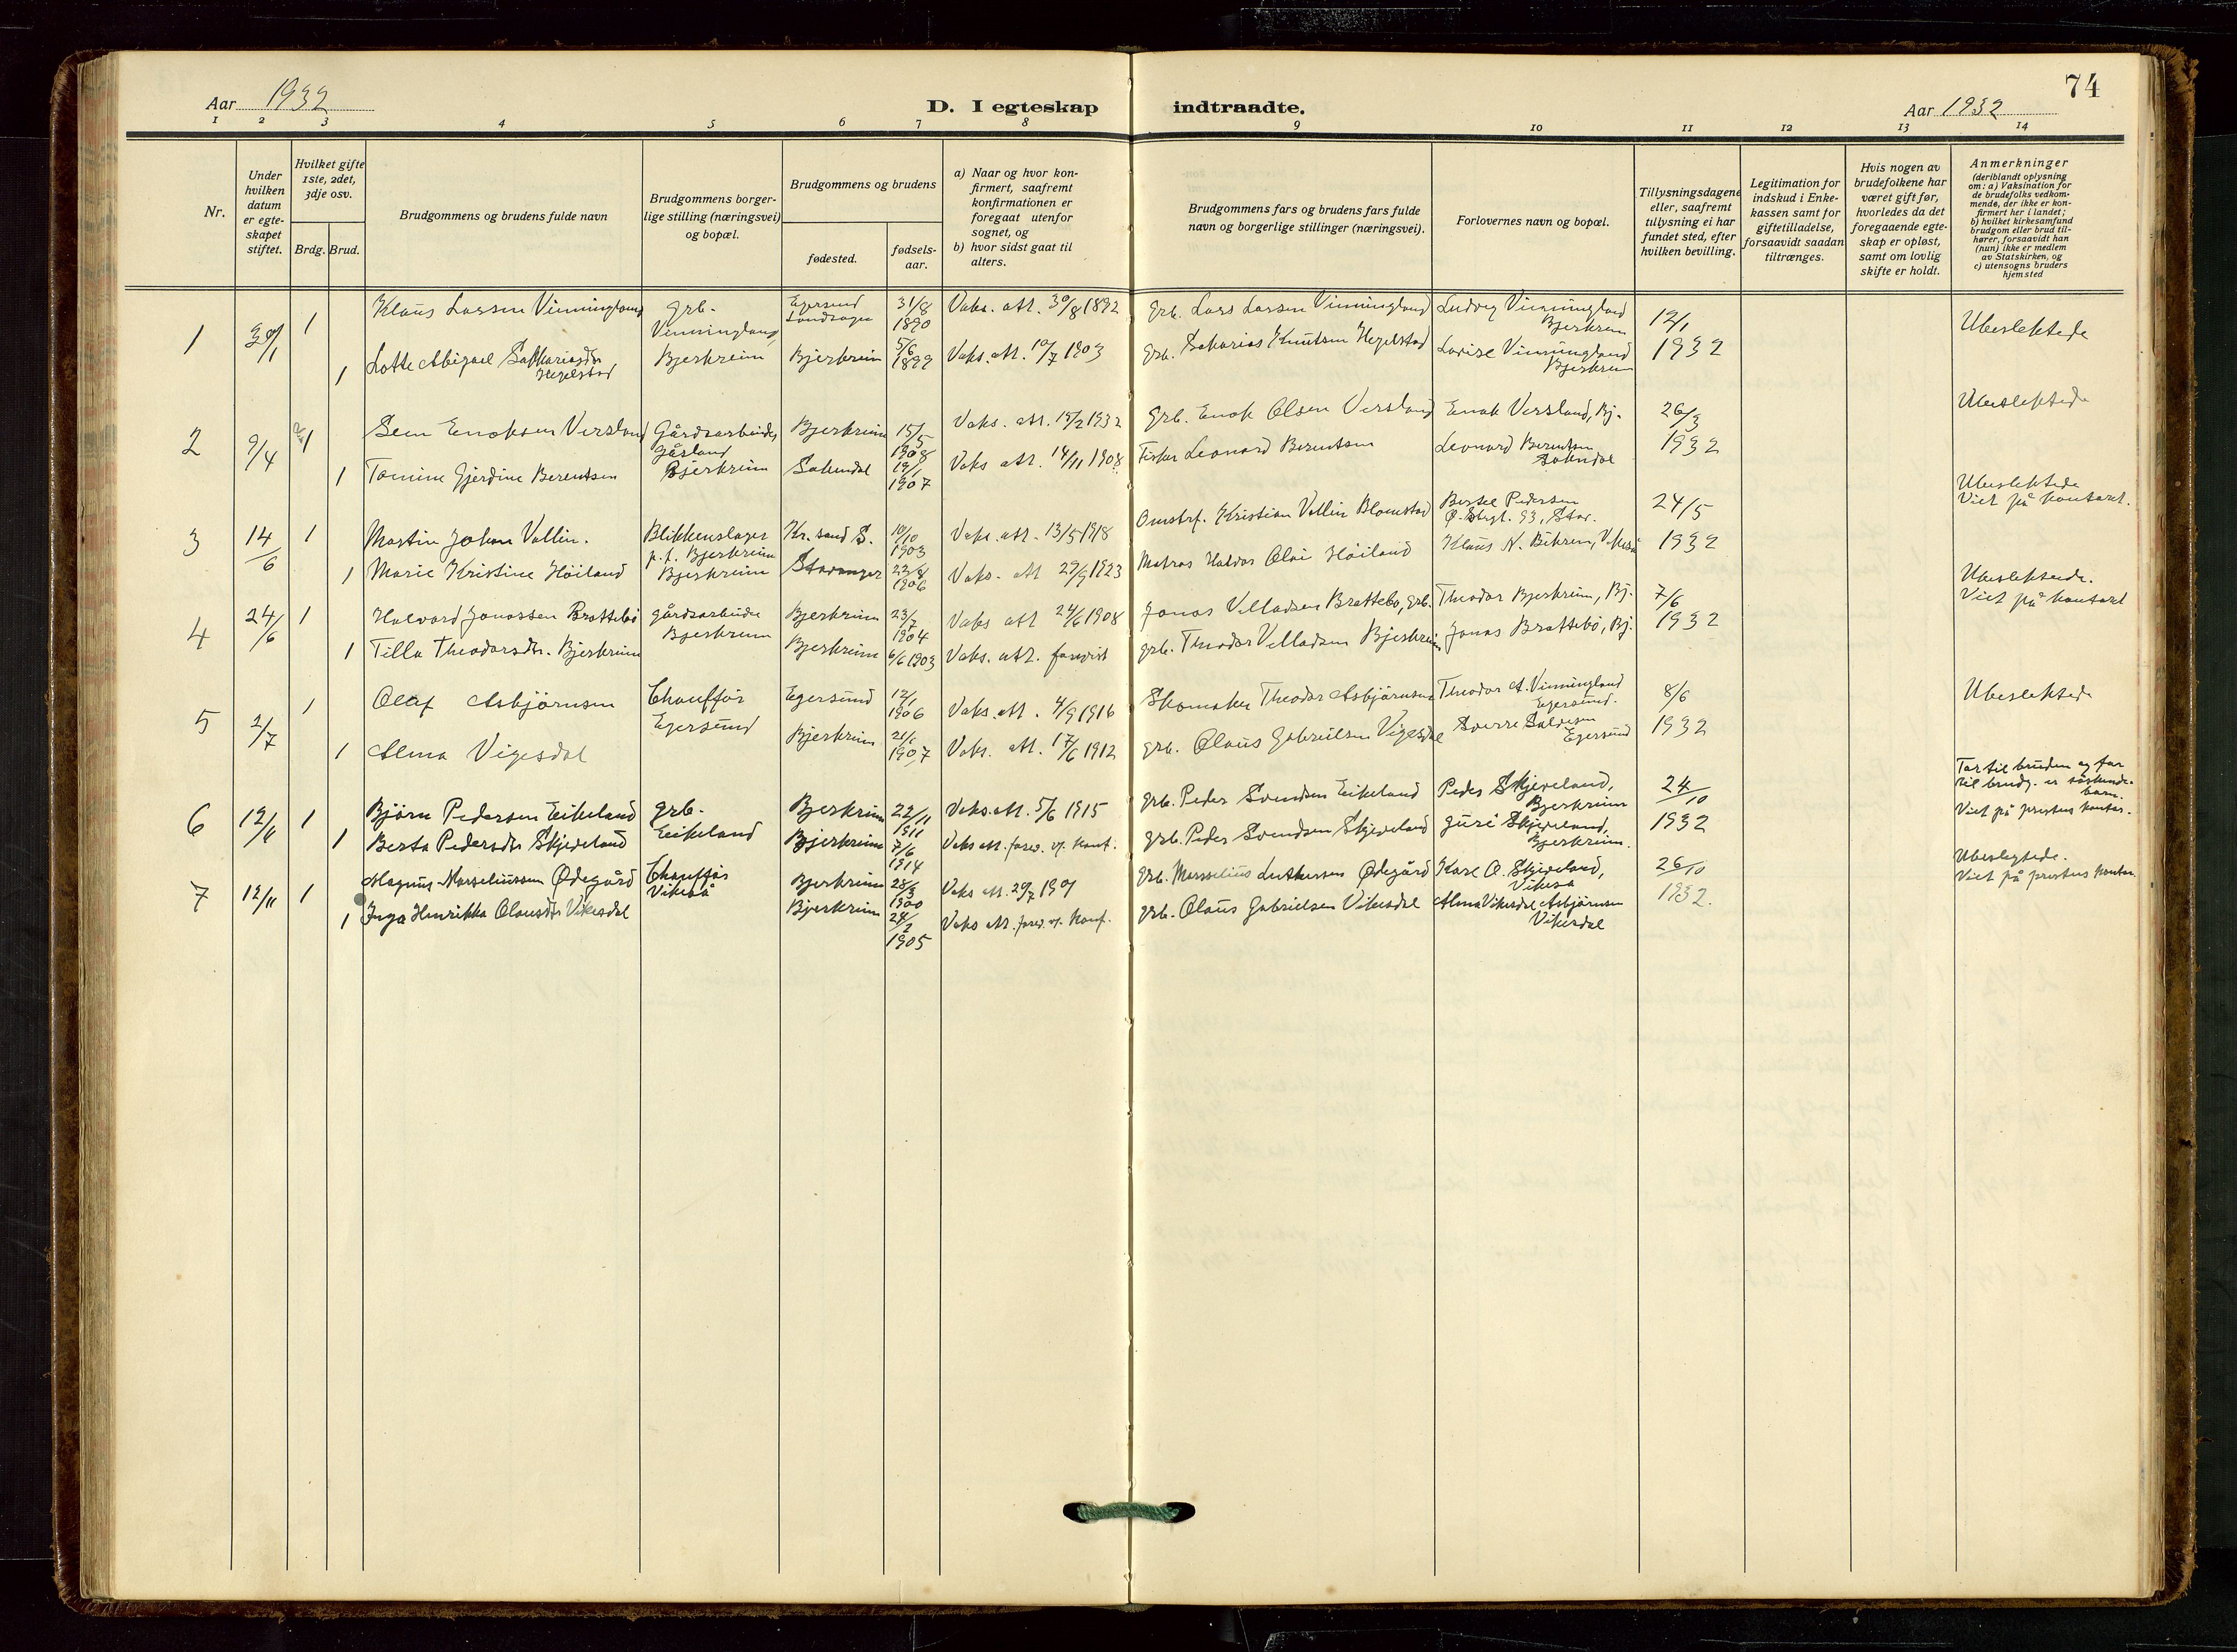 74
Aar 1932
D. I egteskap indtraadte.
Aar 1932
1 2 3 4 5 6 7 8 9 10 11 12 13 14
Nr.
Under hvilken datum er egte-skapet stiftet.
Hvilket gifte 1ste, 2det, 3dje osv.
Brdg. Brud.
Brudgommens og brudens fulde navn
Brudgommens borger-lige stilling (næringsvei) og bopæl.
Brudgommens og brudens
fødested.
fødsels-aar.
a) Naar og hvor kon-firmert, saafremt konfirmationen er foregaat utenfor sognet, og
b) hvor sidst gaat til alters.
Brudgommens fars og brudens fars fulde navn og borgerlige stillinger (næringsvei).
Forlovernes navn og bopæl.
Tillysningsdagene eller, saafremt tillysning ei har fundet sted, efter hvilken bevilling.
Legitimation for indskud i Enke-kassen samt for giftetilladelse, forsaavidt saadan tiltrænges.
Hvis nogen av brudefolkene har været gift før, hvorledes da det foregaaende egte-skap er opløst, samt om lovlig skifte er holdt.
Anmerkninger
(deriblandt oplysning om: a) Vaksination for de brudefolks vedkom-mende, der ikke er kon-firmert her i landet;
b) hvilket kirkesamfund brudgom eller brud til-hører, forsaavidt han (hun) ikke er medlem av Statskirken, og
c) utensogns bruders hjemsted
1 30/1 1 Klaus Larsen Vinningland grb. Vinningland Egersund Landsogn 31/8 1890 Vaks. att. 30/8 1892 Grb. Lars Larsen Vinningland Ludvig Vinningland Bjerkreim 12/1 Ubeslektede
1 Lotte Abigael Sakhariasdtr Hegelstad Bjerkreim Bjerkreim 5/6 1899 Vaks. att. 10/7 1903 Grb. Sakarias Knutsen Hegelstad Lovise Vinningland Bjerkreim 1932
2 9/4 1 Sem Enoksen Versland Gårdsarbeider Gåsland Bjerkreim 15/5 1908 Vaks. att. 15/2 1932 Grb. Enok Olsen Versland Enok Versland, Bj. 26/3 Ubeslektede
1 Tomine Gjerdine Berentsen Bjerkreim Sokndal 19/1 1907 Vaks att. 14/11 1908 Fisker Leonard Berentsen Leonard Berentsen Sokndal 1932
3 14/6 1 Martin Johan Vallin. Blikkenslager p.t. Bjerkreim Kr.sand S. 10/10 1903 Vaks. att. 13/5 1918 Kristian Vallin Blomstad Bertel Pedersen Ø. Strgt. 93, Stav. 24/5 Ubeslektede Viet på kontoret.
1 Marie Kristine Höiland Bjerkreim Stavanger 22/8 1906 Vaks. att 29/9 1923 Matros Halvor Olai Höiland Klaus N. Vikeså 1932
4 24/6 1 Halvard Jonassen Brattebö gårdsarbeider Bjerkreim 23/7 1904 Vaks att 24/6 1908 Jonas Villadsen Brattebö, grb. Theodor Bjerkreim, Bj. 7/6 Ubeslektede. Viet på kontoret
1 Tilla Theodorsdtr. Bjerkreim Bjerkreim Bjerkreim 6/6 1903 Vaks. att. forevist grb. Theodor Villadsen Bjerkreim Jonas Brattebö, Bj. 1932
5 2/7 1 Olaf Asbjörnsen Chauffør Egersund Egersund 12/1 1906 Vaks. att. 4/9 1916 Skomaker Theodor Asbjörnsen Theodor A. Vinningland Egersund. 8/6 Ubeslektede
1 Alma Vigesdal Bjerkreim 21/6 1907 Vaks. att. 17/6 1912 grb. Olaus Gabrielsen Vigesdal Sverre Salvesen Egersund 1932
6 12/11 1 Björn Pedersen Eikeland grb. Eikeland Bjerkreim 22/11 1911 Vaks. att. 5/6 1915 grb. Peder Svendsen Eikeland Peder Skjeveland, Bjerkreim 24/10 Far til bruden og far til brudg. er söskende-barn. Viet på prestens kontor.
1 Berta Pedersdtr Skjeveland Bjerkreim 7/6 1914 Vaks att. forev. v. konf. grb. Peder Svendsen Skjeveland Guri Skjeveland, Bjerkreim. 1932
7 12/11 1 Magnus Marseliussen Ødegård Chauffør Vikeså Bjerkreim 28/3 1900 Vaks att. 20/7 1901 grb. Marsselius Ødegård Kare O. Skjeveland, Vikeså 26/10 Ubeslegtede. Viet på prestens kontor.
1 Inga Henrikka Olausdtr Vikesdal Bjerkreim 24/2 1905 Vaks att. forev. v. konf. grb. Olaus Gabrielsen Vikesdal Alma Vikesdal Asbjörnsen Vikesdal 1932.